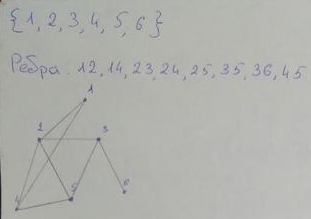 {1, 2, 3, 4, 5, 6}
Ребра: 12, 14, 23, 24, 25, 35, 36, 45
1
2 3
4 5 6